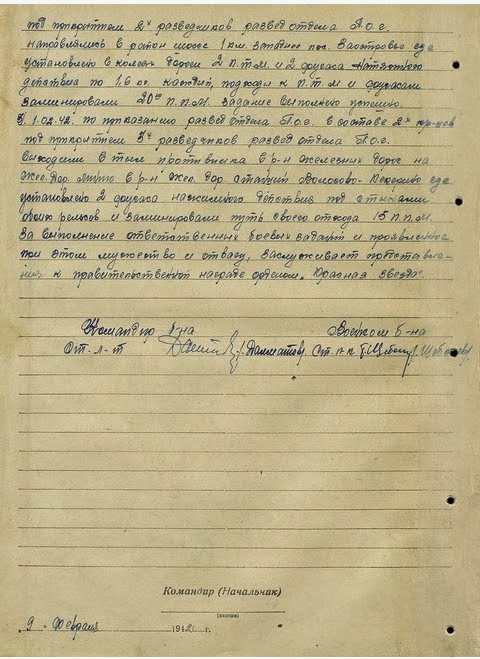 под прикрытием 2х разведчиков развед отдела П.о.г.
направившись в район шоссе 1 км. западнее пос. Заостровье где
установлено в колеях дороги 2 П.Т.М. и 2 фугаса натяжного
действия по 1,6 кг. каждый, подходы к П.Т.М и фугасам
заминировали 20ю П.П.М. задание выполнено успешно.
1.02.42. по приказанию развед отдела П.о.г. в составе 2х кр-цев
под прикрытием 3х разведчиков развед отдела П.о.г.
выходили в тыл противника в р-н железных дорог на
жел. дор. линию в р-н жел. дор станций где
установлено 2 фугаса нажимного действия под стыками
обоих рельсов и заминировали путь своего отхода 15 П.П.М.
За выполнение ответственных боевых задании и проявленное
при этом мужество и отвагу, заслуживает представле-
ния к правительственной награде орденом „Красная звезда"
Командир б-на Военком б-на
Ст. л-т Ст. п-к
Командир (Начальник)
(звание)
9 - февраля 1942 г.